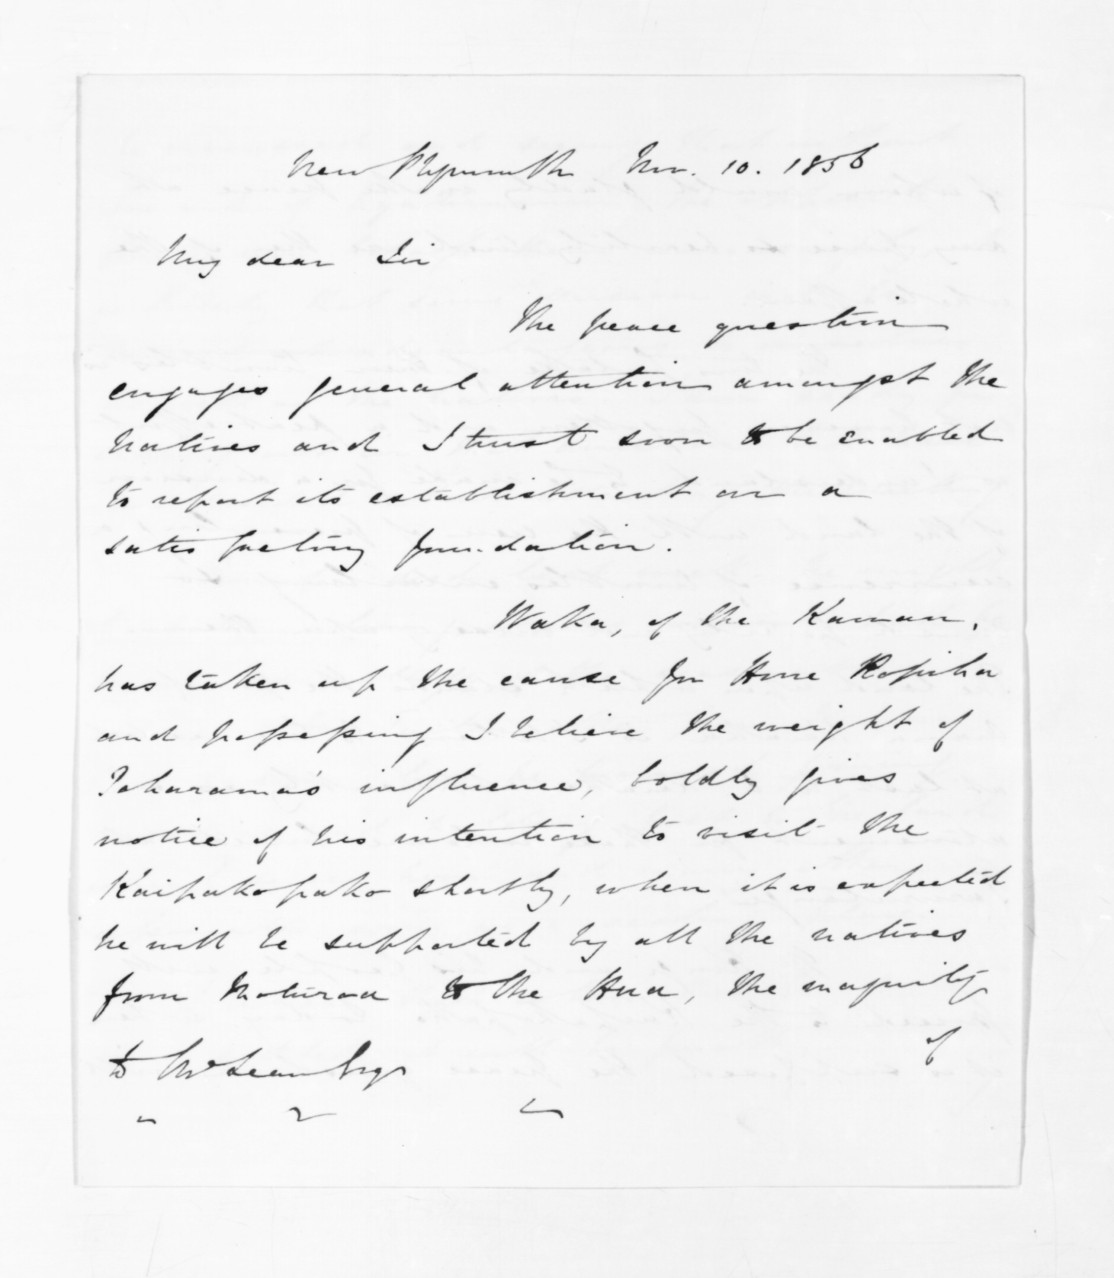 New Plymouth Nov. 10. 1856
My dear Sir
The peace question
engages general attention amongst the
natives and I trust soon to be enabled
to report its establishment on a
satisfactory foundation.
Waka, of the Kaman,
has taken up the cause for Hone Ropiha
and possessing I believe the weight of
Taharama's influence, boldly gives
notice of his intention to visit the
Kaipakopako shortly, when it is expected
he will be supported by all the natives
from Moturoa to the Hua, the majority
of
to McLean Esqr